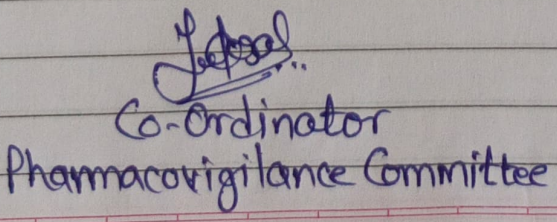 Co-Ordinator
Pharmacovigilance Committee